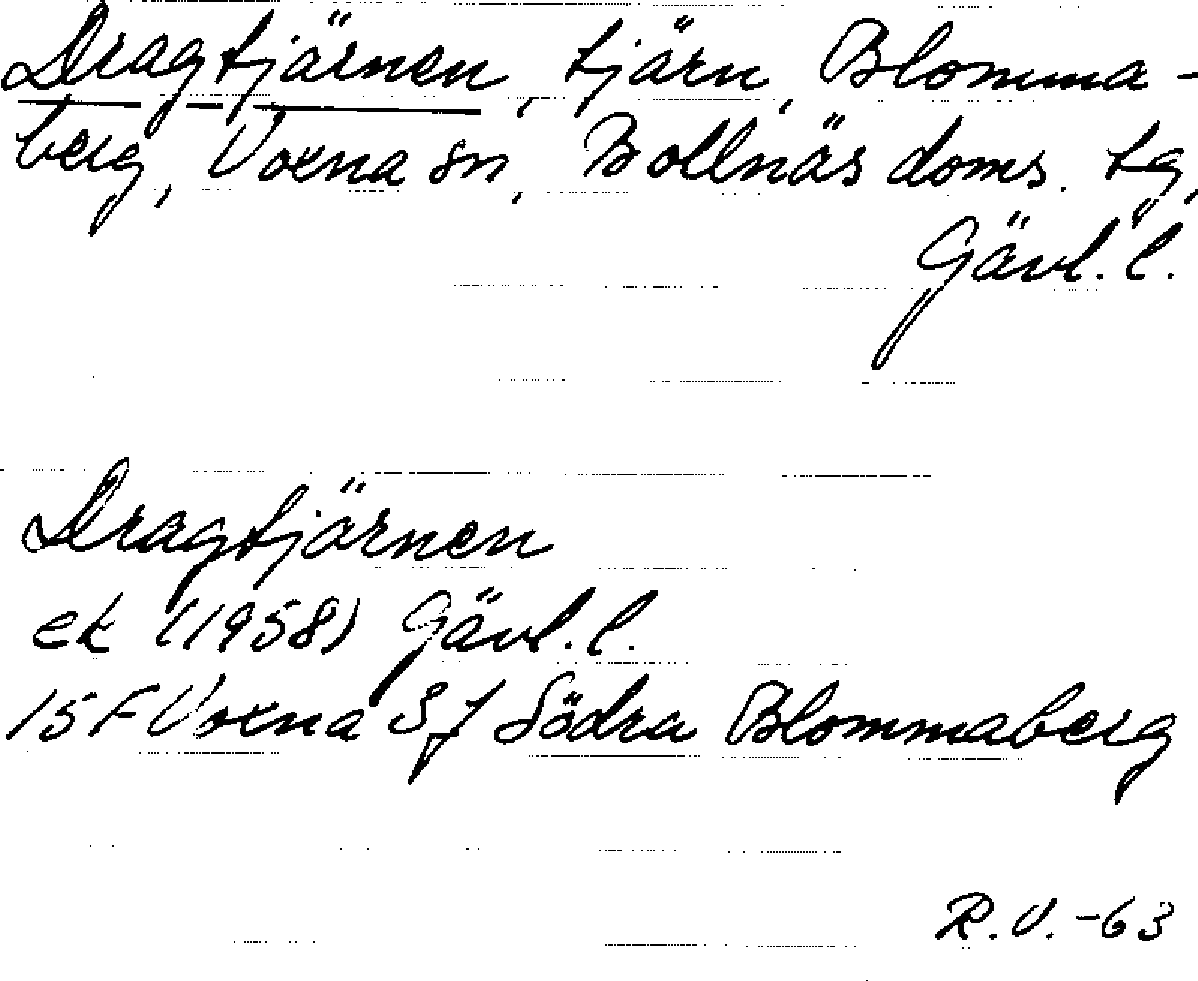 Dragtjärnen, tjärn, Blomma-
berg, Voxna sn, Bollnäs doms. tg,
Gävl. l.
Dragtjärnen
ek (1958) Gävl. l.
15F Voxna Sf Södra Blommaberg
R.V. -63